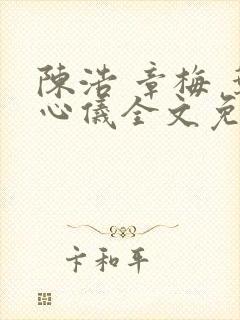 陳浩 章梅
心儀全文免
卞和平